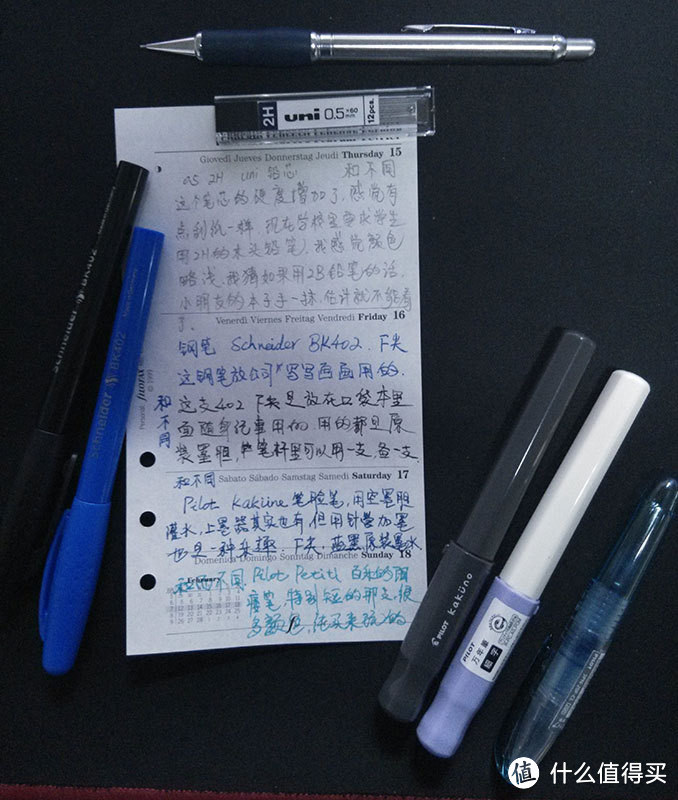 2H uni 0.5 mm ×60 12pcs.
Giovedì Jueves Donnerstag Jeudi Thursday 15
0.5 2H uni 铅芯 和不同
这个笔芯的硬度增加了,感觉有
点刮纸一样,现在学校里要求学生
用2H的木头铅笔,我感觉颜色
略浅,我猜如果用2B铅笔的话,
小朋友的本子手一抹,估计就不能看
了.
Venerdì Viernes Freitag Vendredi Friday 16
钢笔 Schneider BK402. F尖
这钢笔放公司 写写画画用的.
这支402 F尖是放在口袋本里
面随笔记事用的,用的都是原
装墨胆,笔杆里可以用一支,备一支.
和不同
Sabato Sábado Samstag Samedi Saturday 17
和不同
Pilot Kakuno 笔脸笔,用空墨胆
灌水,上墨器其实也有,但用针管加墨
也是一种乐趣. F尖,蓝黑原装墨水
Domenica Domingo Sonntag Dimanche Sunday 18
February
和不同 Pilot Petit1 百乐的
笔,特别短的那支,很
多颜色,
Schneider BK402
Schneider BK402
PILOT kaküno
PILOT
万年笔
细字
值 什么值得买